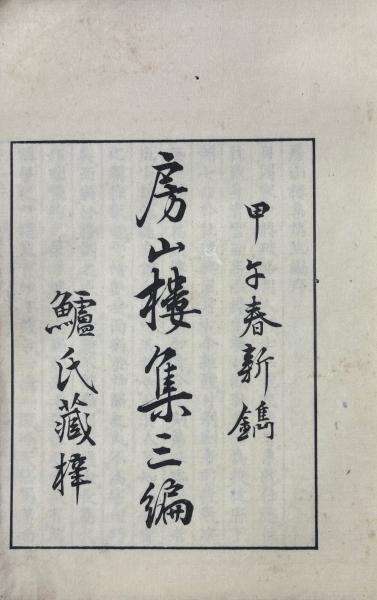 甲午春新鐫
房山樓集三編
鱸氏藏榟